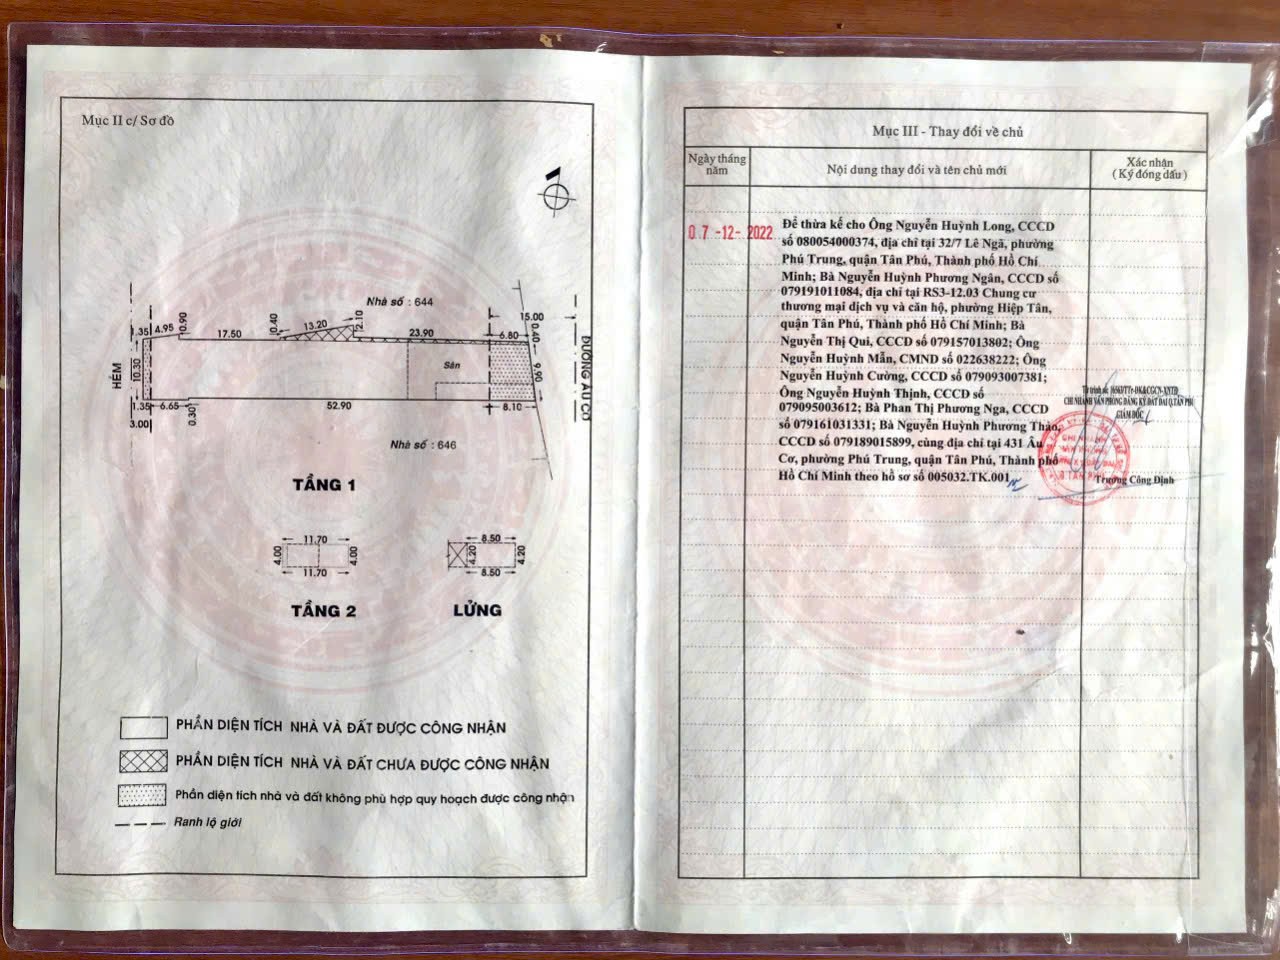 Mục II c/ Sơ đồ
Nhà số : 644
15.00
1.35
4.95
0.90
17.50
0.40
13.20
2.10
23.90
6.80
0.40
HẺM
10.30
Sân
9.90
ĐƯỜNG ÂU CƠ
1.35
6.65
0.30
52.90
8.10
3.00
Nhà số : 646
TẦNG 1
11.70
4.00
4.00
11.70
TẦNG 2
8.50
4.20
4.20
8.50
LỬNG
PHẦN DIỆN TÍCH NHÀ VÀ ĐẤT ĐƯỢC CÔNG NHẬN
PHẦN DIỆN TÍCH NHÀ VÀ ĐẤT CHƯA ĐƯỢC CÔNG NHẬN
Phần diện tích nhà và đất không phù hợp quy hoạch được công nhận
Ranh lộ giới
Mục III - Thay đổi về chủ
Ngày tháng
năm
Nội dung thay đổi và tên chủ mới
Xác nhận
( Ký đóng dấu )
07 -12- 2022
Để thừa kế cho Ông Nguyễn Huỳnh Long, CCCD
số 080054000374, địa chỉ tại 32/7 Lê Ngã, phường
Phú Trung, quận Tân Phú, Thành phố Hồ Chí
Minh; Bà Nguyễn Huỳnh Phương Ngân, CCCD số
079191011084, địa chỉ tại RS3-12.03 Chung cư
thương mại dịch vụ và căn hộ, phường Hiệp Tân,
quận Tân Phú, Thành phố Hồ Chí Minh; Bà
Nguyễn Thị Qui, CCCD số 079157013802; Ông
Nguyễn Huỳnh Mẫn, CMND số 022638222; Ông
Nguyễn Huỳnh Cường, CCCD số 079093007381;
Ông Nguyễn Huỳnh Thịnh, CCCD số
079095003612; Bà Phan Thị Phương Nga, CCCD
số 079161031331; Bà Nguyễn Huỳnh Phương Thảo,
CCCD số 079189015899, cùng địa chỉ tại 431 Âu
Cơ, phường Phú Trung, quận Tân Phú, Thành phố
Hồ Chí Minh theo hồ sơ số 005032.TK.001
CHI NHÁNH VĂN PHÒNG ĐĂNG KÝ ĐẤT ĐAI Q.TÂN PHÚ
GIÁM ĐỐC
CHI NHÁNH
Q.TÂN PHÚ
Trương Công Định